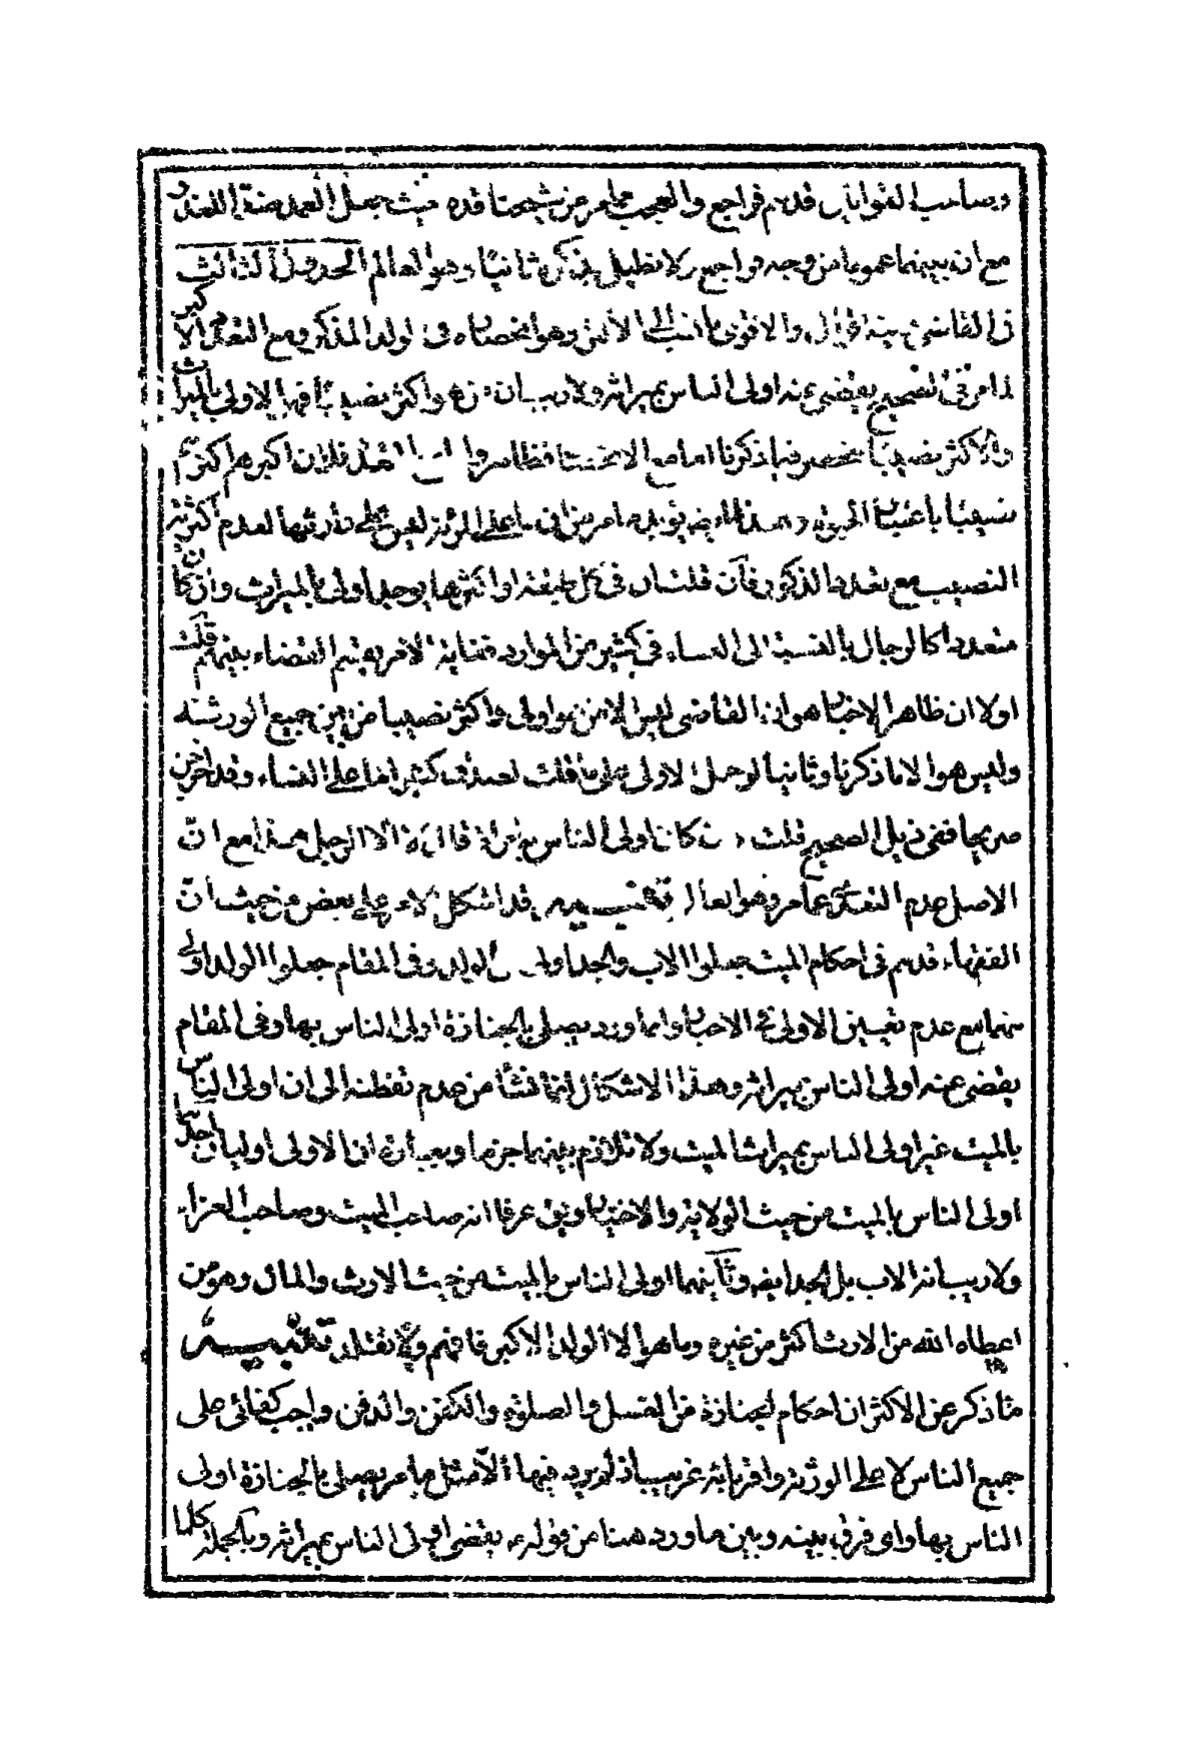 وصاحب الفوائد قدهم فراجع والعجب مما مر عن شيخنا قده حيث جعل العمد ضد العذر
مع ان بينهما عموما من وجه فراجع ولا نطيل بذكره ثانيا وهو العالم الحدوث الثالث
فى القاضى فيه اقوال والاقوى ما انسب الى الاكثر وهو اختصاصه فى الولد المذكور مع التعدد الاكبر
لما مر فى الصحيح يقضى عنه اولى الناس بميراثه ولا ريب ان واكثر نصيبا فهو الاولى بالميراث
والاكثر نصيبا منحصر فيما ذكرنا اما مع الانحصار فظاهر واما التعدد فلان اكبرهم اكثرهم
نصيبا باعتبار الحبوة يؤيده ما مر من لعدم اكثرية
النصيب مع تعدد الذكور فان قلت ان فى كل طبقة او اكثرها يوجد اولى بالميراث وان كان
متعددا كالرجال بالنسبة الى النساء فى كثير من الموارد فغاية الامر يقسم القضاء بينهم قلت
اولا ان ظاهر الاخبار هو ان القاضى ليس الا من هو اولى واكثر نصيبا من بين جميع الورثة
وليس هو الا ما ذكرنا وثانيا لو حمل الاولى على ما قلت لصدق كثيرا ما على النساء وقد اخرجن
صريحا ففى ذيل الصحيح قلت ان كان اولى الناس به امراة قال لا الا الرجل هذا مع ان
الاصل عدم التعدى عما مر وهو العالم تعقيب قد اشكل الامر على بعض من حيث ان
الفقهاء قدهم فى احكام الميت جعلوا الاب والجد اولى من الولد وفى المقام جعلوا الولد اولى
منهما مع عدم تعيين الاولى فى الاخبار وانما ورد يصلى بالجنازة اولى الناس بها وفى المقام
يقضى عنه اولى الناس بميراثه وهذا الاشكال انما نشأ من عدم تفطنه الى ان اولى الناس
بالميت غير اولى الناس بميراث الميت ولا تلازم بينهما جزما وبعبارة ان الاولى اوليان احدهما
اولى الناس بالميت من حيث الولاية والاختيار ويق عرفا انه صاحب الميت وصاحب العزاء
ولا ريب انه الاب بل الجد ايضه وثانيهما اولى الناس بالميت من حيث الارث والمال وهو من
اعطاه الله من الارث اكثر من غيره وما هو الا الولد الاكبر فافهم ولا تقلد تنبيه
مما ذكر عن الاكثر ان احكام الجنازة من الغسل والصلوة والكفن والدفن واجب كفائى على
جميع الناس لا على الورثة واقربائه غريب اذ لم يرد فيها الا مثل ما مر يصلى بالجنازة اولى
الناس بها واى فرق بينه وبين ما ورد هنا من قوله يقضى اولى الناس بميراثه وبالجملة كلما